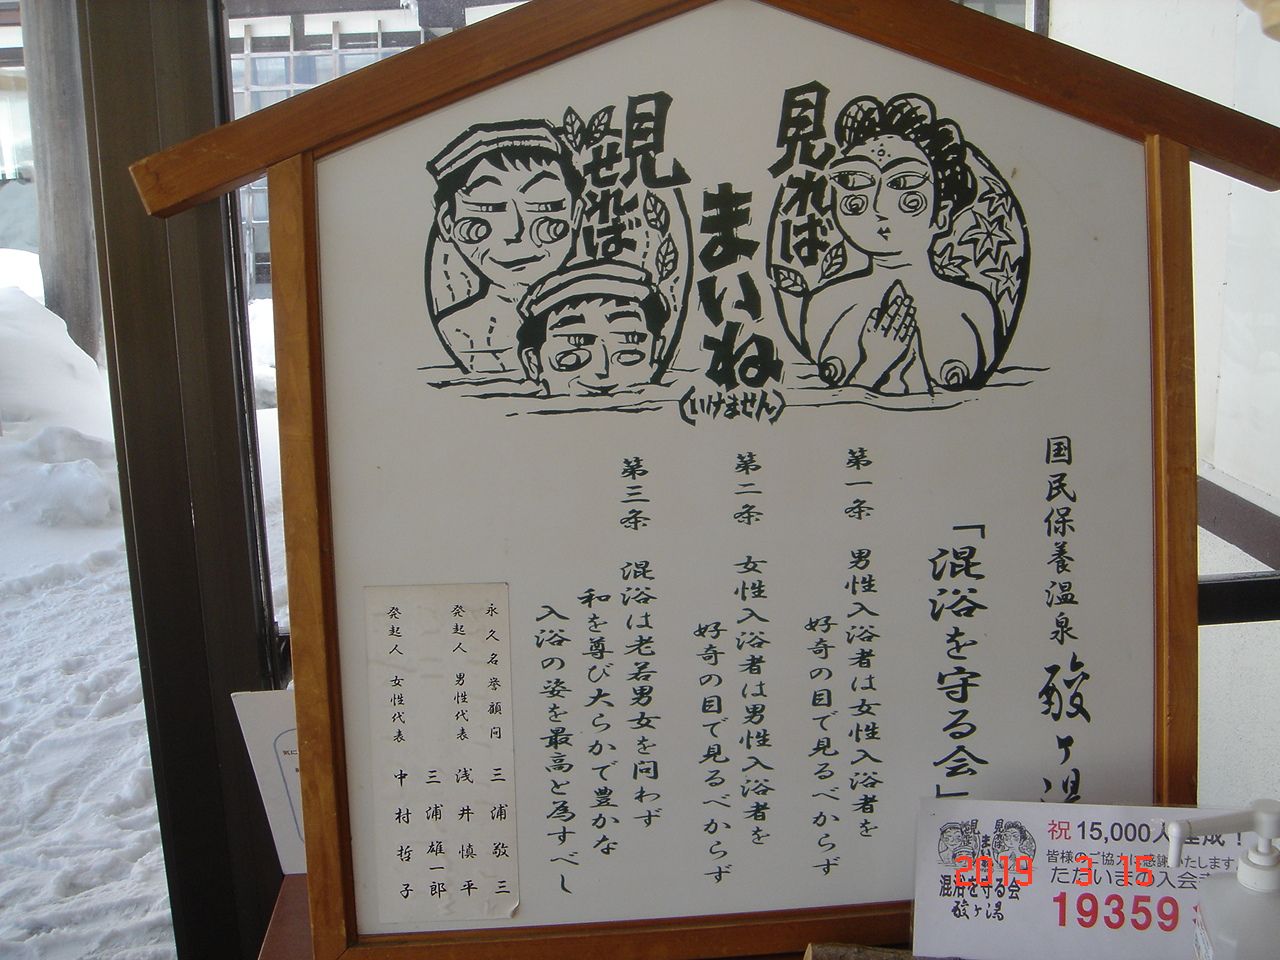 見れば
まいね
(いけません)
見せれば
国民保養温泉 酸ヶ湯
「混浴を守る会」
第一条 男性入浴者は女性入浴者を
好奇の目で見るべからず
第二条 女性入浴者は男性入浴者を
好奇の目で見るべからず
第三条 混浴は老若男女を問わず
和を尊び大らかで豊かな
入浴の姿を最高と為すべし
永久名誉顧問 三浦敬三
発起人 男性代表 浅井慎平
三浦雄一郎
発起人 女性代表 中村哲子
見れば
まいね
見せれば
混浴を守る会
酸ヶ湯
祝 15,000人達成!
皆様のご協力に感謝いたします
ただいまの入会
19359
2019 3 15